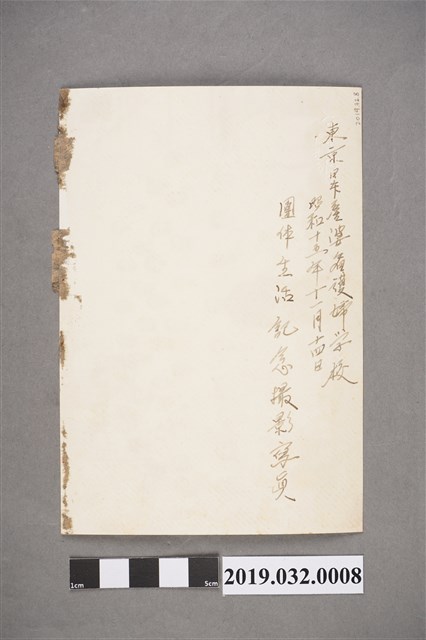 東京日本產婆看護婦学校
昭和十五年十一月十四日
團体生活記念撮影寫真
1cm
5cm
2019.032.0008